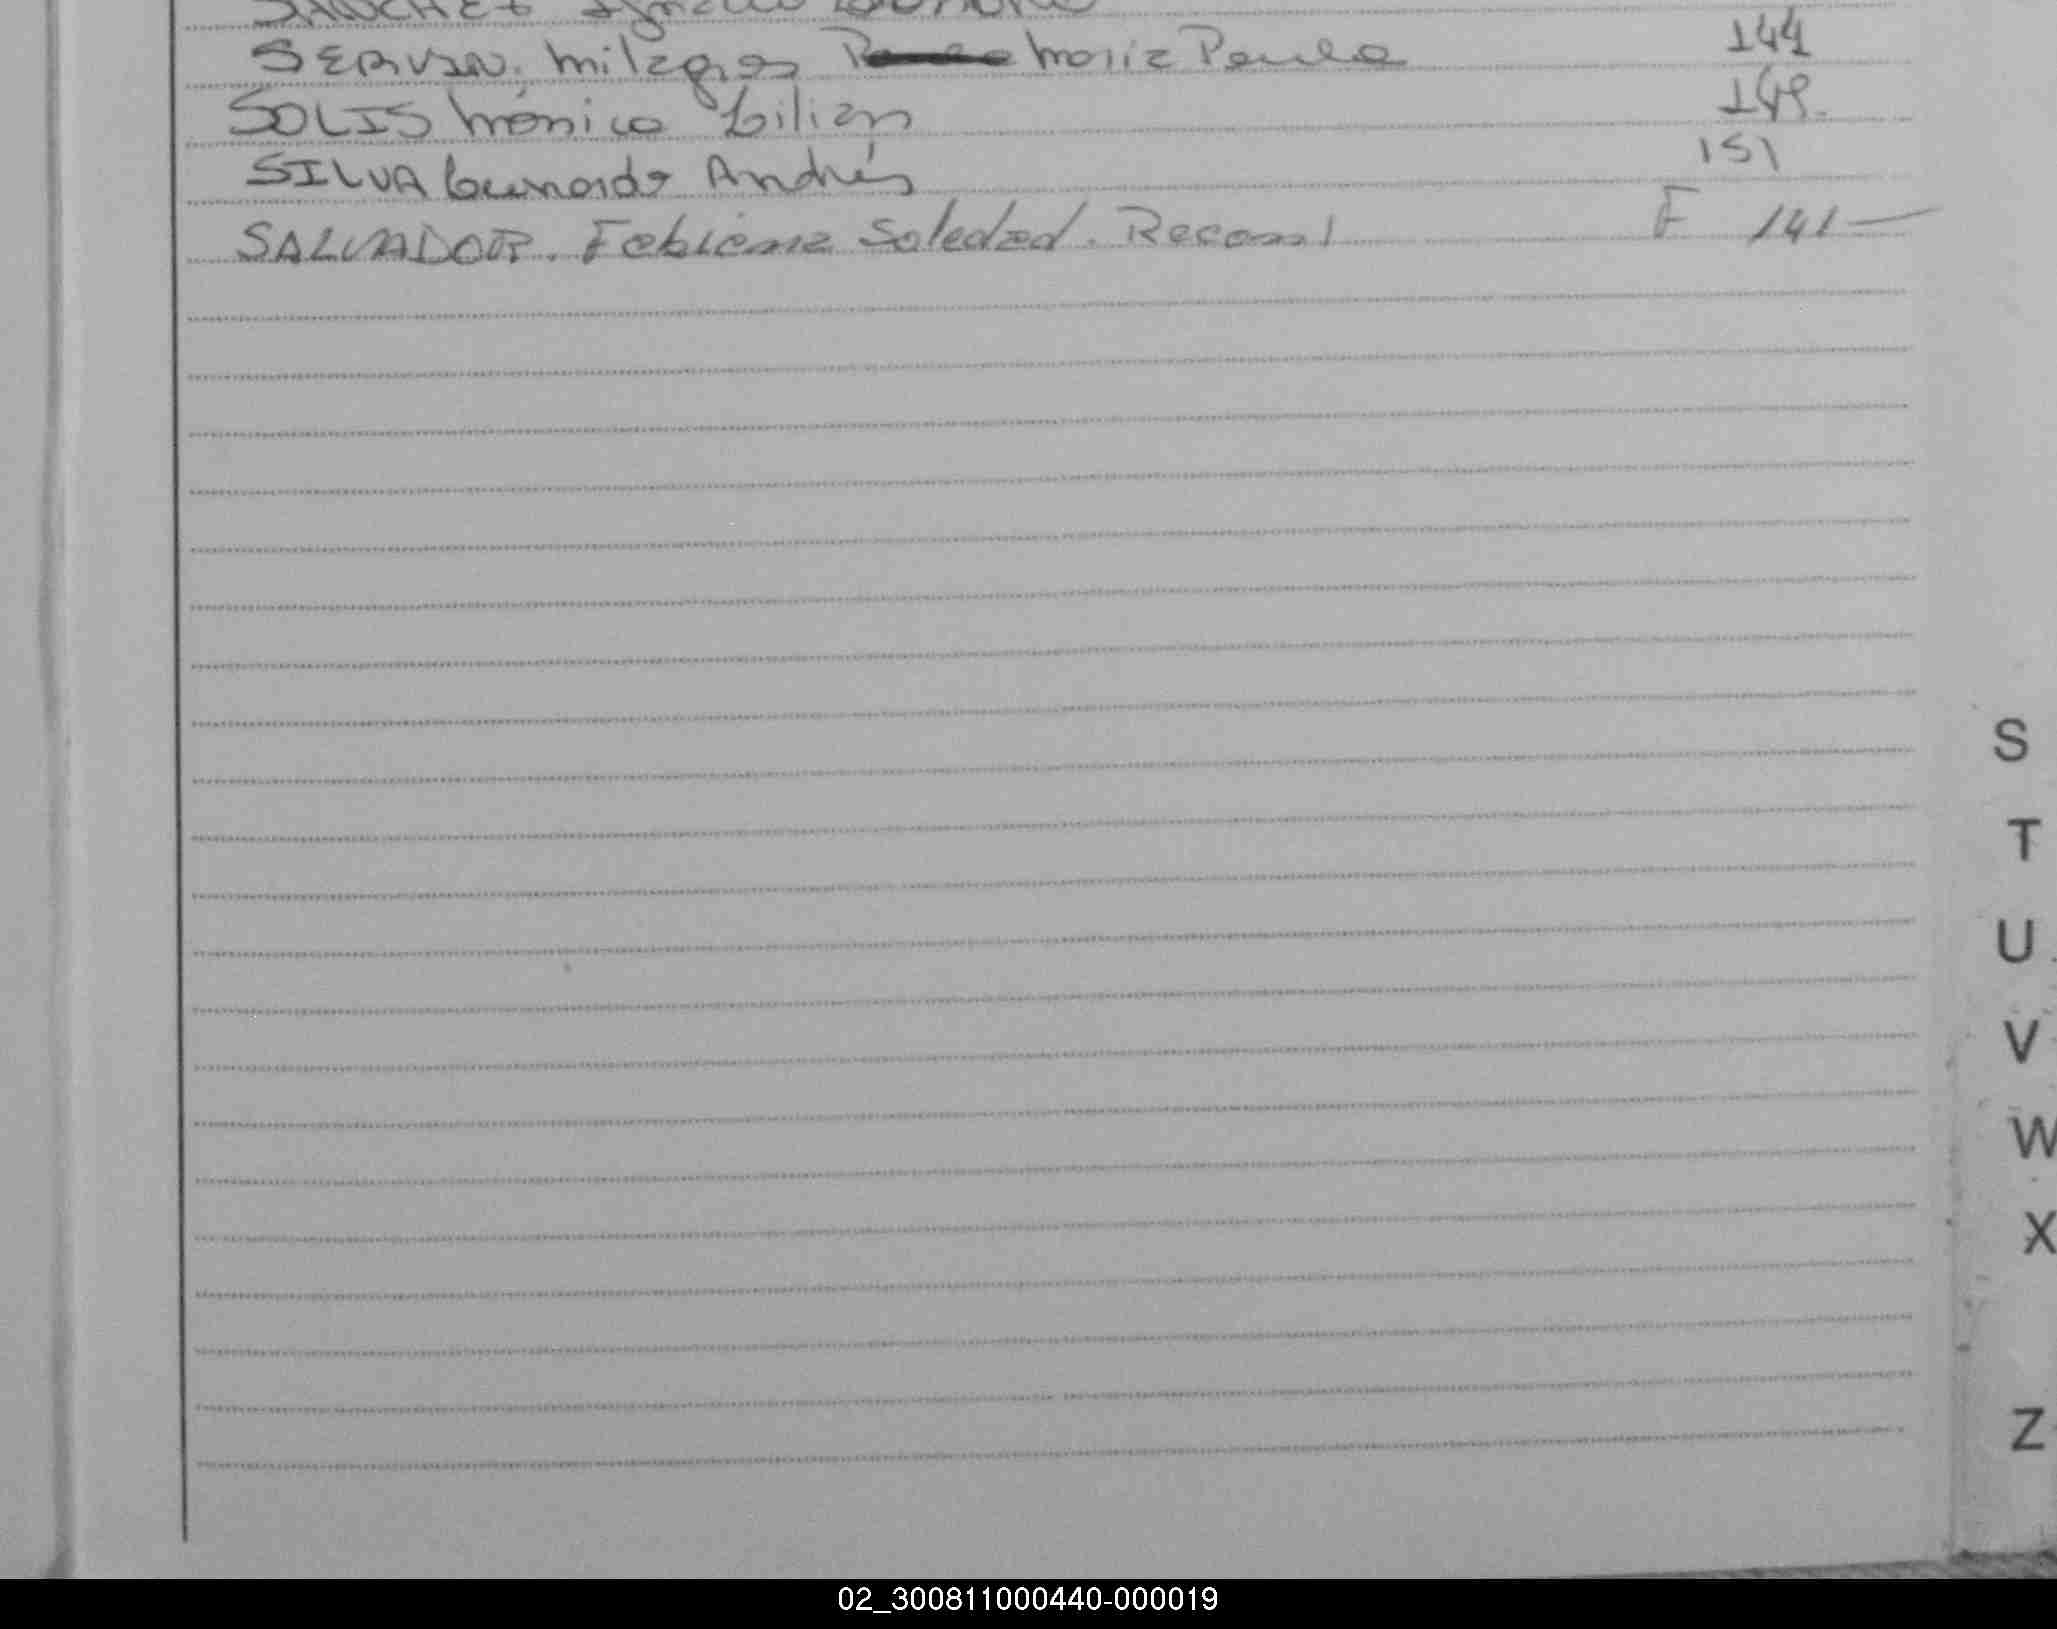 SANCHEZ
SERVIN. Milagros Maria Paula 144
SOLIS Mónica Lilian 149.
SILVA Leonardo Andrés 151
SALVADOR. Fabiana Soledad. Recon F 141—
S
T
U
V
W
X
Z
02_300811000440-000019